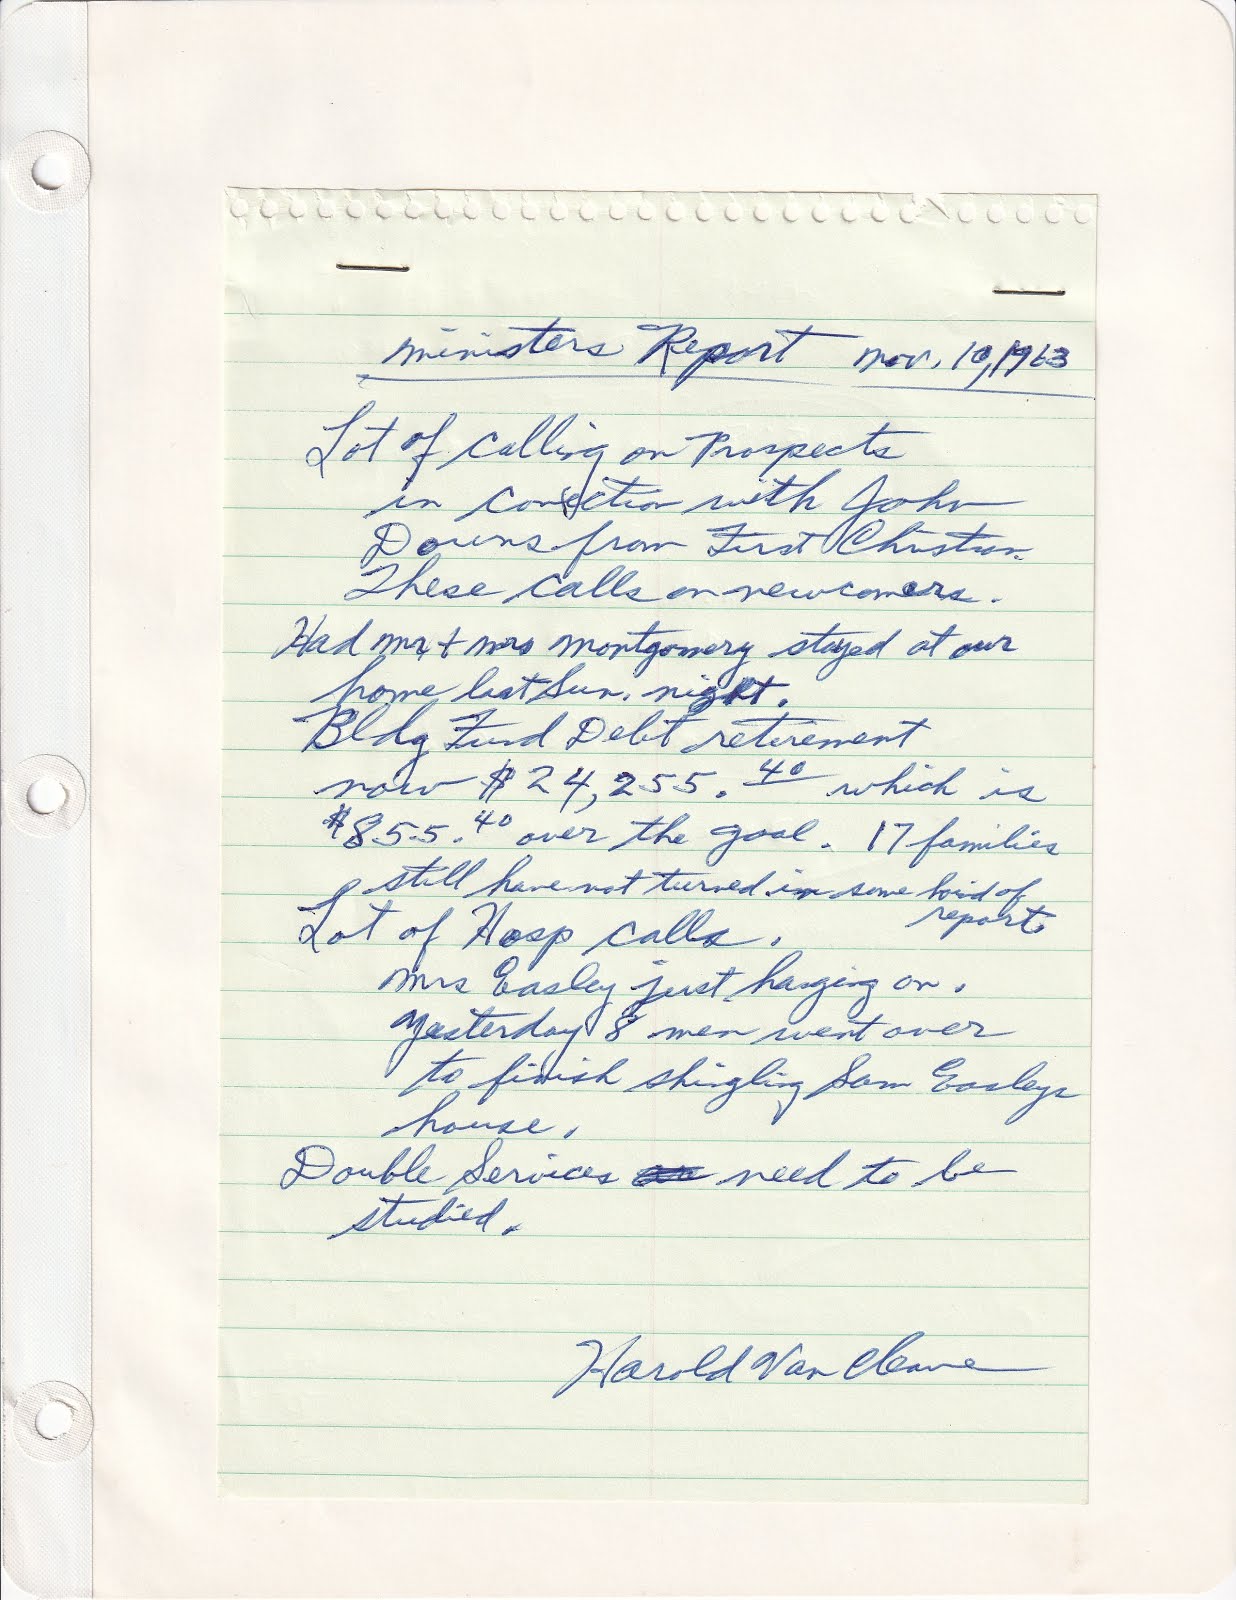 Ministers Report Nov. 10, 1963
Lot of calling on Prospects
in conection with John
Downs from First Christian.
These calls on newcomers.
Had Mr + Mrs Montgomery stayed at our
home last Sun. night.
Bldg Fund Debt retirement
now $24,255.40 which is
$855.40 over the goal. 17 families
still have not turned in some kind of
report.
Lot of Hosp calls.
Mrs Easley just hanging on.
Yesterday 8 men went over
to finish shingling Sam Easleys
house.
Double Services need to be
studied.
Harold Van Cleave